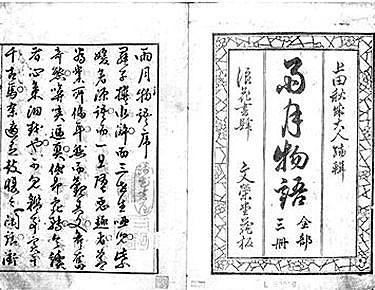 上田秋成大人編輯
雨月物語
全部
三冊
浪花書肆
文榮堂藏板
雨月物語序
羅子撰水滸而三世生唖兒紫
媛著源語而一旦墮惡趣者蓋
為業所偪耳然而觀其文各奮
奇態揜哢逼真低昂宛轉令讀
者心氣洞越也可見鑑事實于
千古焉余適有鼓腹之閑話衝